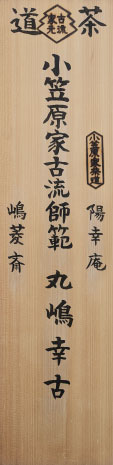 茶道
古流家元
小笠原家茶道
陽幸庵
小笠原家古流師範 丸嶋幸古
嶋菱斎